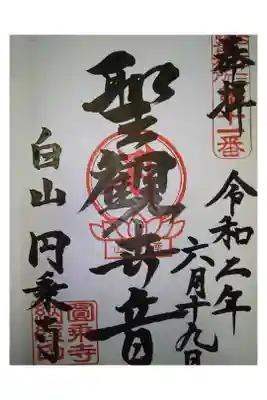 奉拝
聖観世音
令和元年
六月十九日
白山 円乗寺
圓乗寺